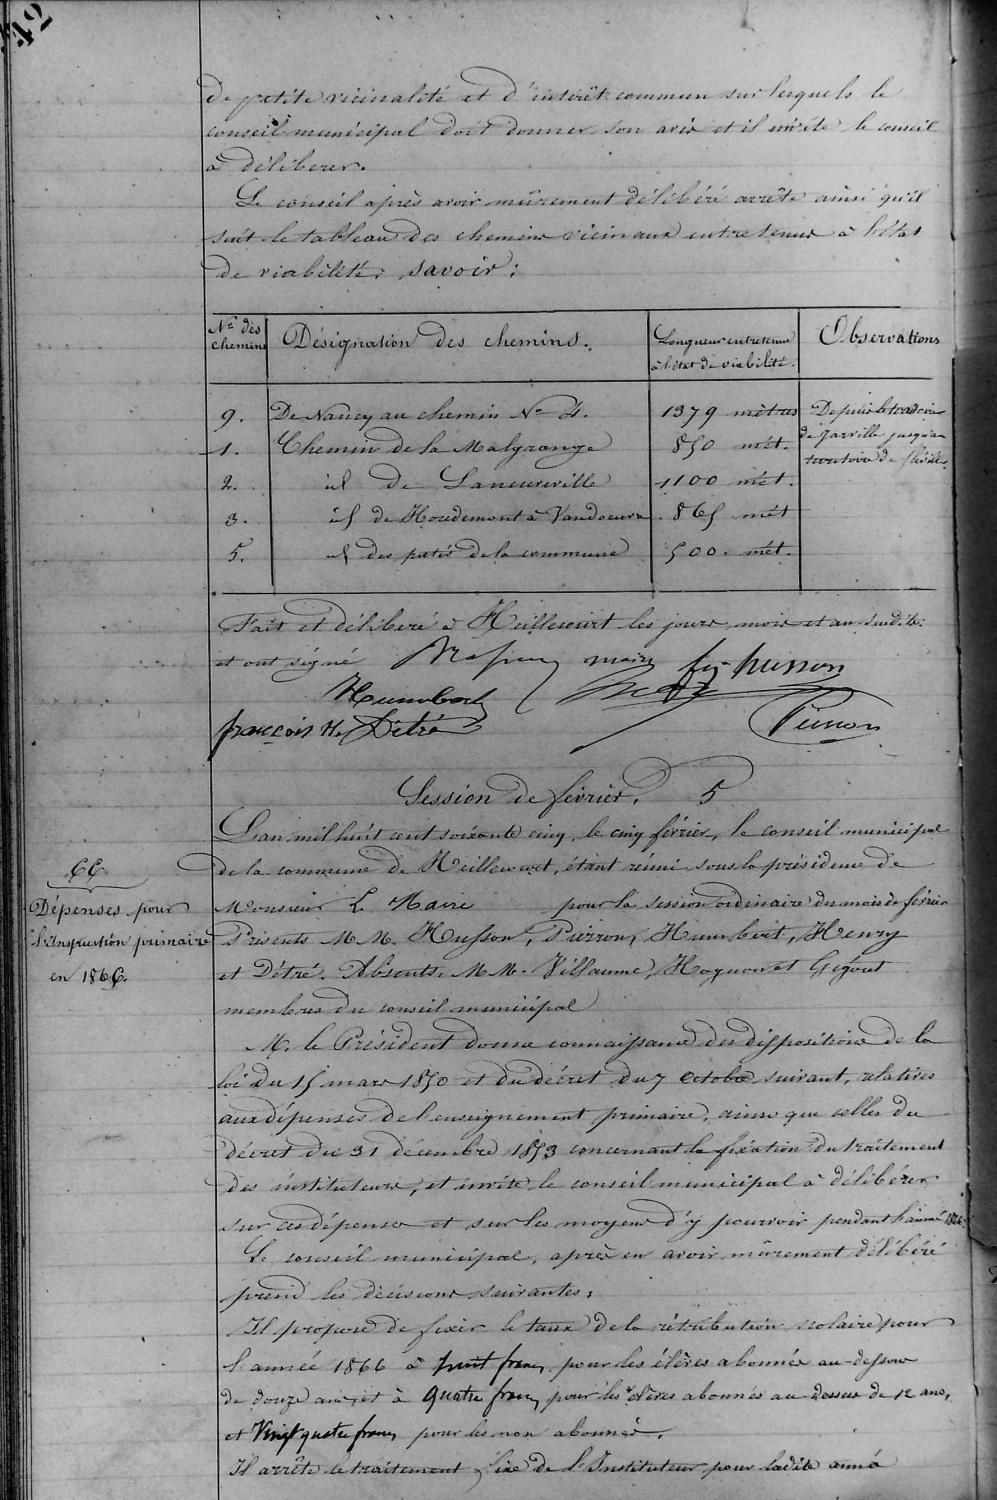 42
de petite vicinalité et d'intérêt commun sur lesquels le
conseil municipal doit donner son avis et il invite le conseil
à déliberer.
Le conseil après avoir mûrement délibéré arrête ainsi qu'il
suit le tableau des chemins vicinaux entretenus à l'état
de viabilité; savoir:
Nos des chemins
Désignation des chemins.
Longueur entretenue à l'état de viabilité.
Observations
9. De Nancy au chemin No 4. 1379 mètres Depuis le
1. Chemin de la Malgrange 850 mét. de Jarville jusqu'au
2. id de Laneuveville 1100 mét. territoire de fléville.
3. id de Houdemont à Vandoeuvre. 865 mét
5. id des patis de la commune 500. mét.
Fait et déliberé à Heillecourt les jours, mois et an susdits.
et ont signé maire husson
Humbert
françois H. Détré Pierron
Session de février. 5
L'an mil huit cent soixante cinq, le cinq février, le conseil municipal
de la commune de Heillecourt, étant réuni sous la présidence de
Monsieur Le Maire pour la session ordinaire du mois de février
Présents M M. Husson, Pierron, Humbert, Henry
et Détré. Absents. M M. Villaume, et Gégout
membres du conseil municipal
66
Dépenses pour
l'instruction primaire
en 1866.
M. le Président donne connaissance des dispositions de la
loi du 15 mars 1850 et du décret du 7 Octobre suivant, relatives
aux dépenses de l'enseignement primaire, ainsi que celles du
décret du 31 décembre 1853 concernant la fixation du traitement
des instituteurs, et invite le conseil municipal à délibérer
sur ces dépenses et sur les moyens d'y pourvoir pendant l'année 1866.
Le conseil municipal, après en avoir mûrement délibéré
prend les décisions suivantes:
Il propose de fixer le taux de la rétribution scolaire pour
l'année 1866 à huit francs pour les élèves abonnés au-dessous
de douze ans, et à quatre francs pour les élèves abonnés au dessus de 12 ans,
et Vingt quatre francs pour les non abonnés.
Il arrête le traitement fixe de l'Instituteur pour ladite année